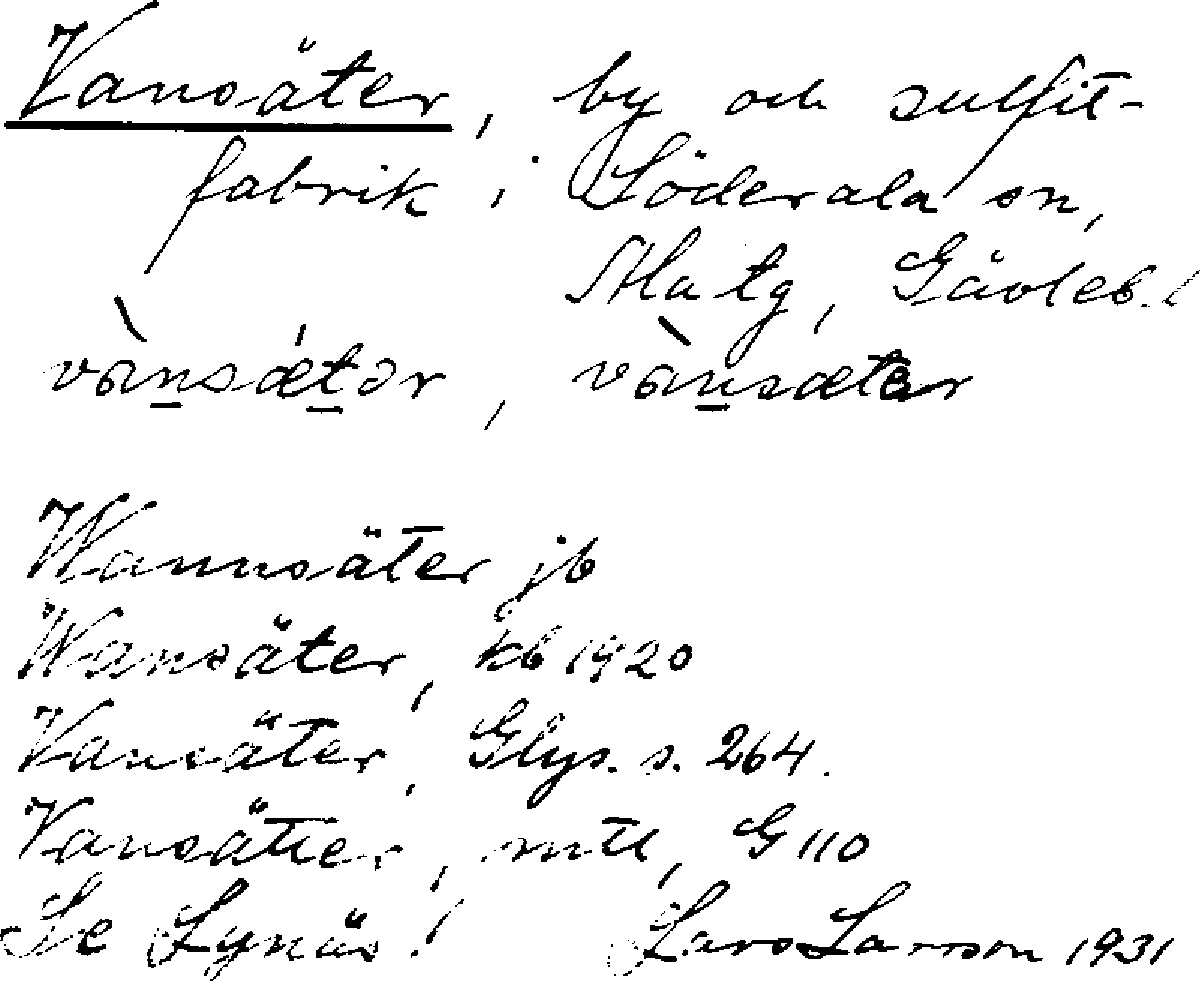 Vansäter, by och sulfit-
fabrik i Söderala sn,
Ala tg, Gävleb. l
vànsǽtər, vànsætər
Wannsäter jb
Wansäter, kb 1920
Vansäter, Glys. s. 264.
Vansätter, mtl, G 110
Se Lynäs! Lars Larsson 1931